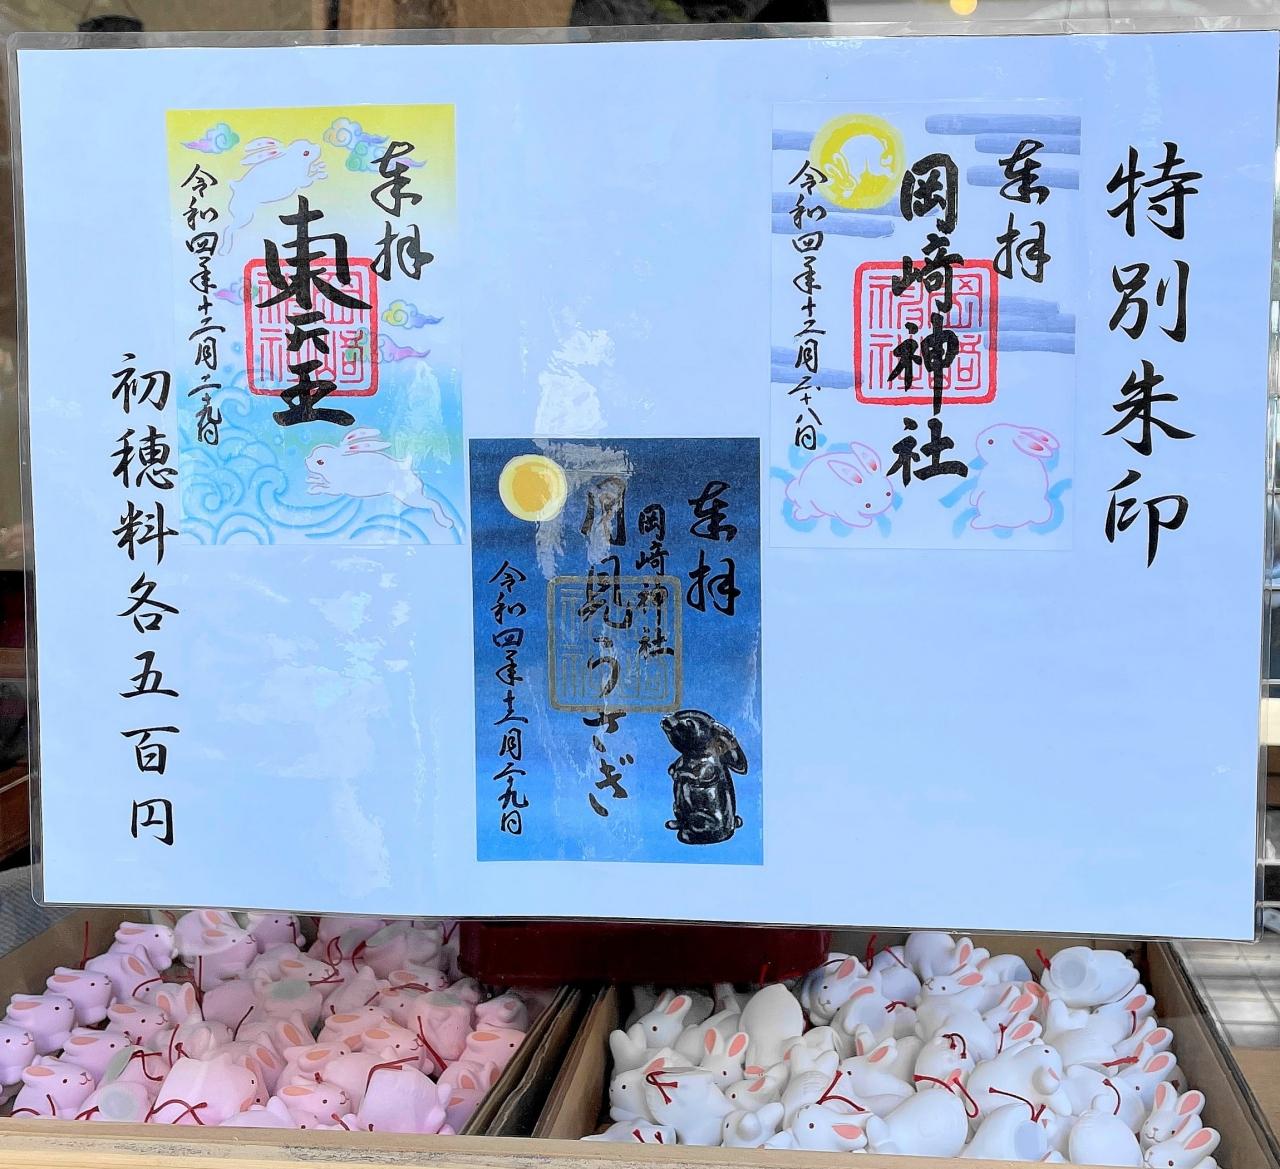 特別朱印
奉拝
岡﨑神社
令和四年十二月二十八日
奉拝
岡﨑神社
月見うさぎ
令和四年十二月二十九日
奉拝
東天王
令和四年十二月二十九日
初穂料各五百円